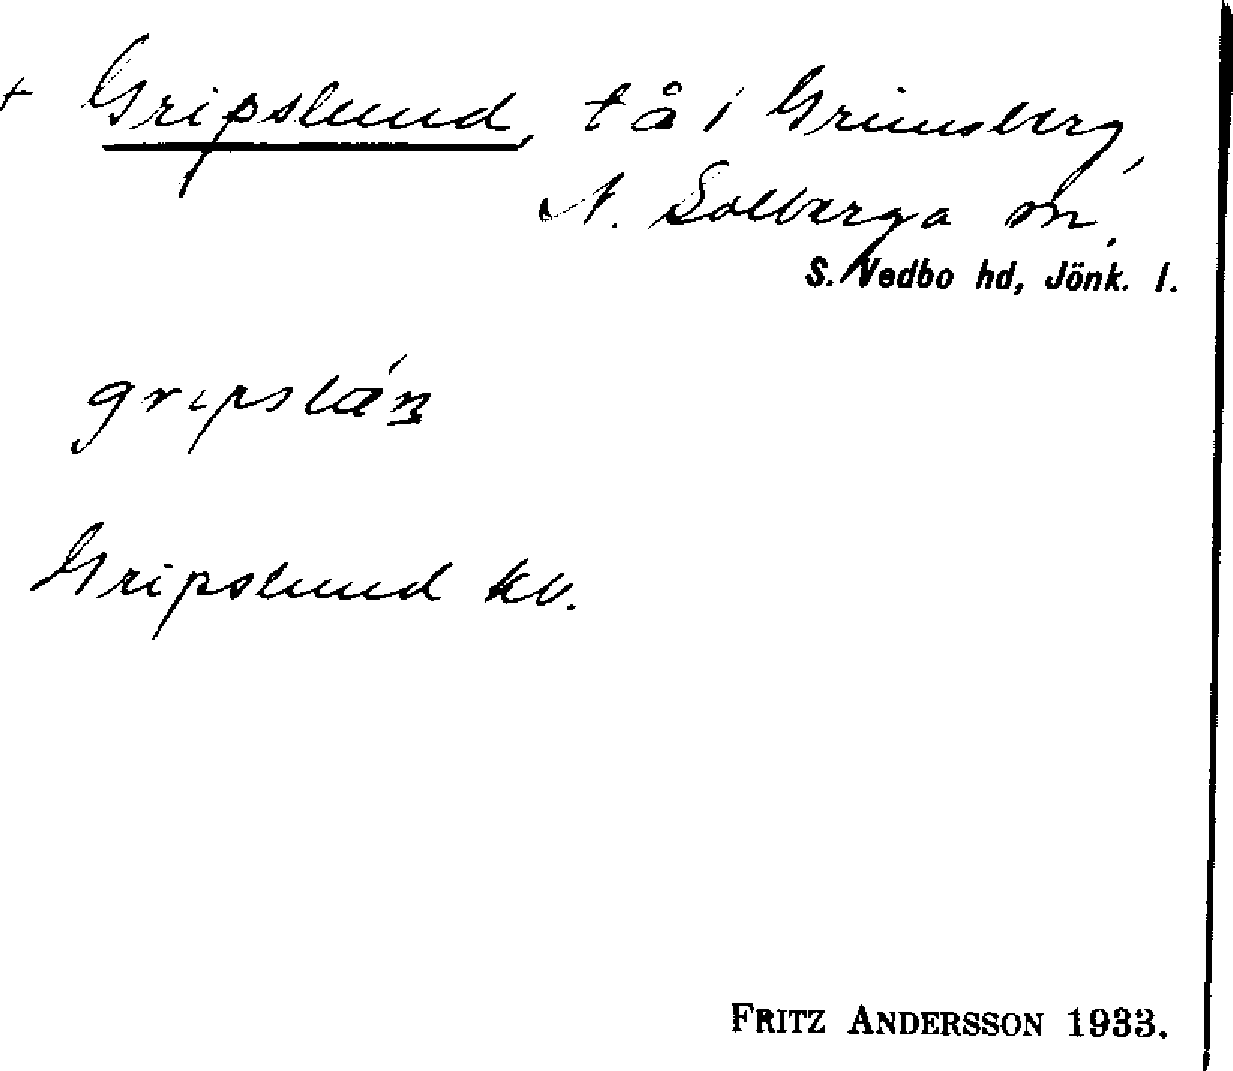 + Gripslund, t å / Grimsberg,
N. Solberga sn,
S. Vedbo hd, Jönk. l.
Gripslund kv.
FRITZ ANDERSSON 1933.